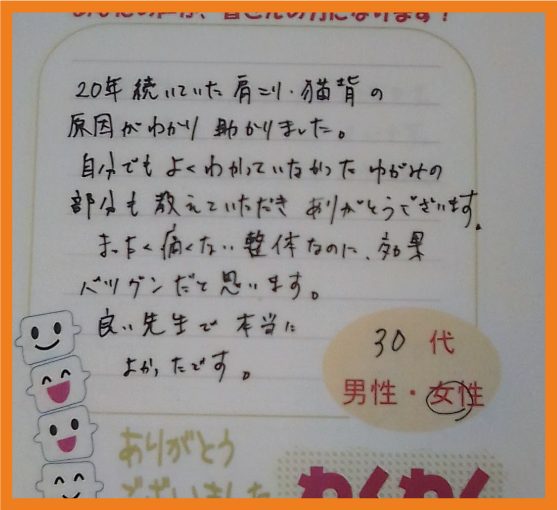 20年続いていた肩こり・猫背の
原因がわかり助かりました。
自分でもよくわかっていなかったゆがみの
部分も教えていただきありがとうございます。
まったく痛くない整体なのに、効果
バツグンだと思います。
良い先生で本当に
よかったです。
30代
男性・女性
ありがとう
ございました
わくわく